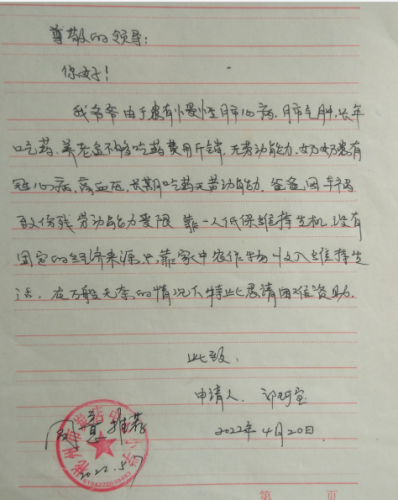 尊敬的领导:
你好!
我爷爷由于患有慢性肺心病,肺气肿,长年
吃药,养老金不够吃药费用开销,无劳动能力,奶奶患有
冠心病,高血压,长期吃药无劳动能力.爸爸因车祸
致伤残劳动能力受限 靠一人低保维持生机,没有
固定的经济来源,只靠家中农作物收入维持生
活.在万般无奈的情况下特此恳请困难资助.
此致
申请人
2022年4月20日.
同意推荐
2022.5
第 页